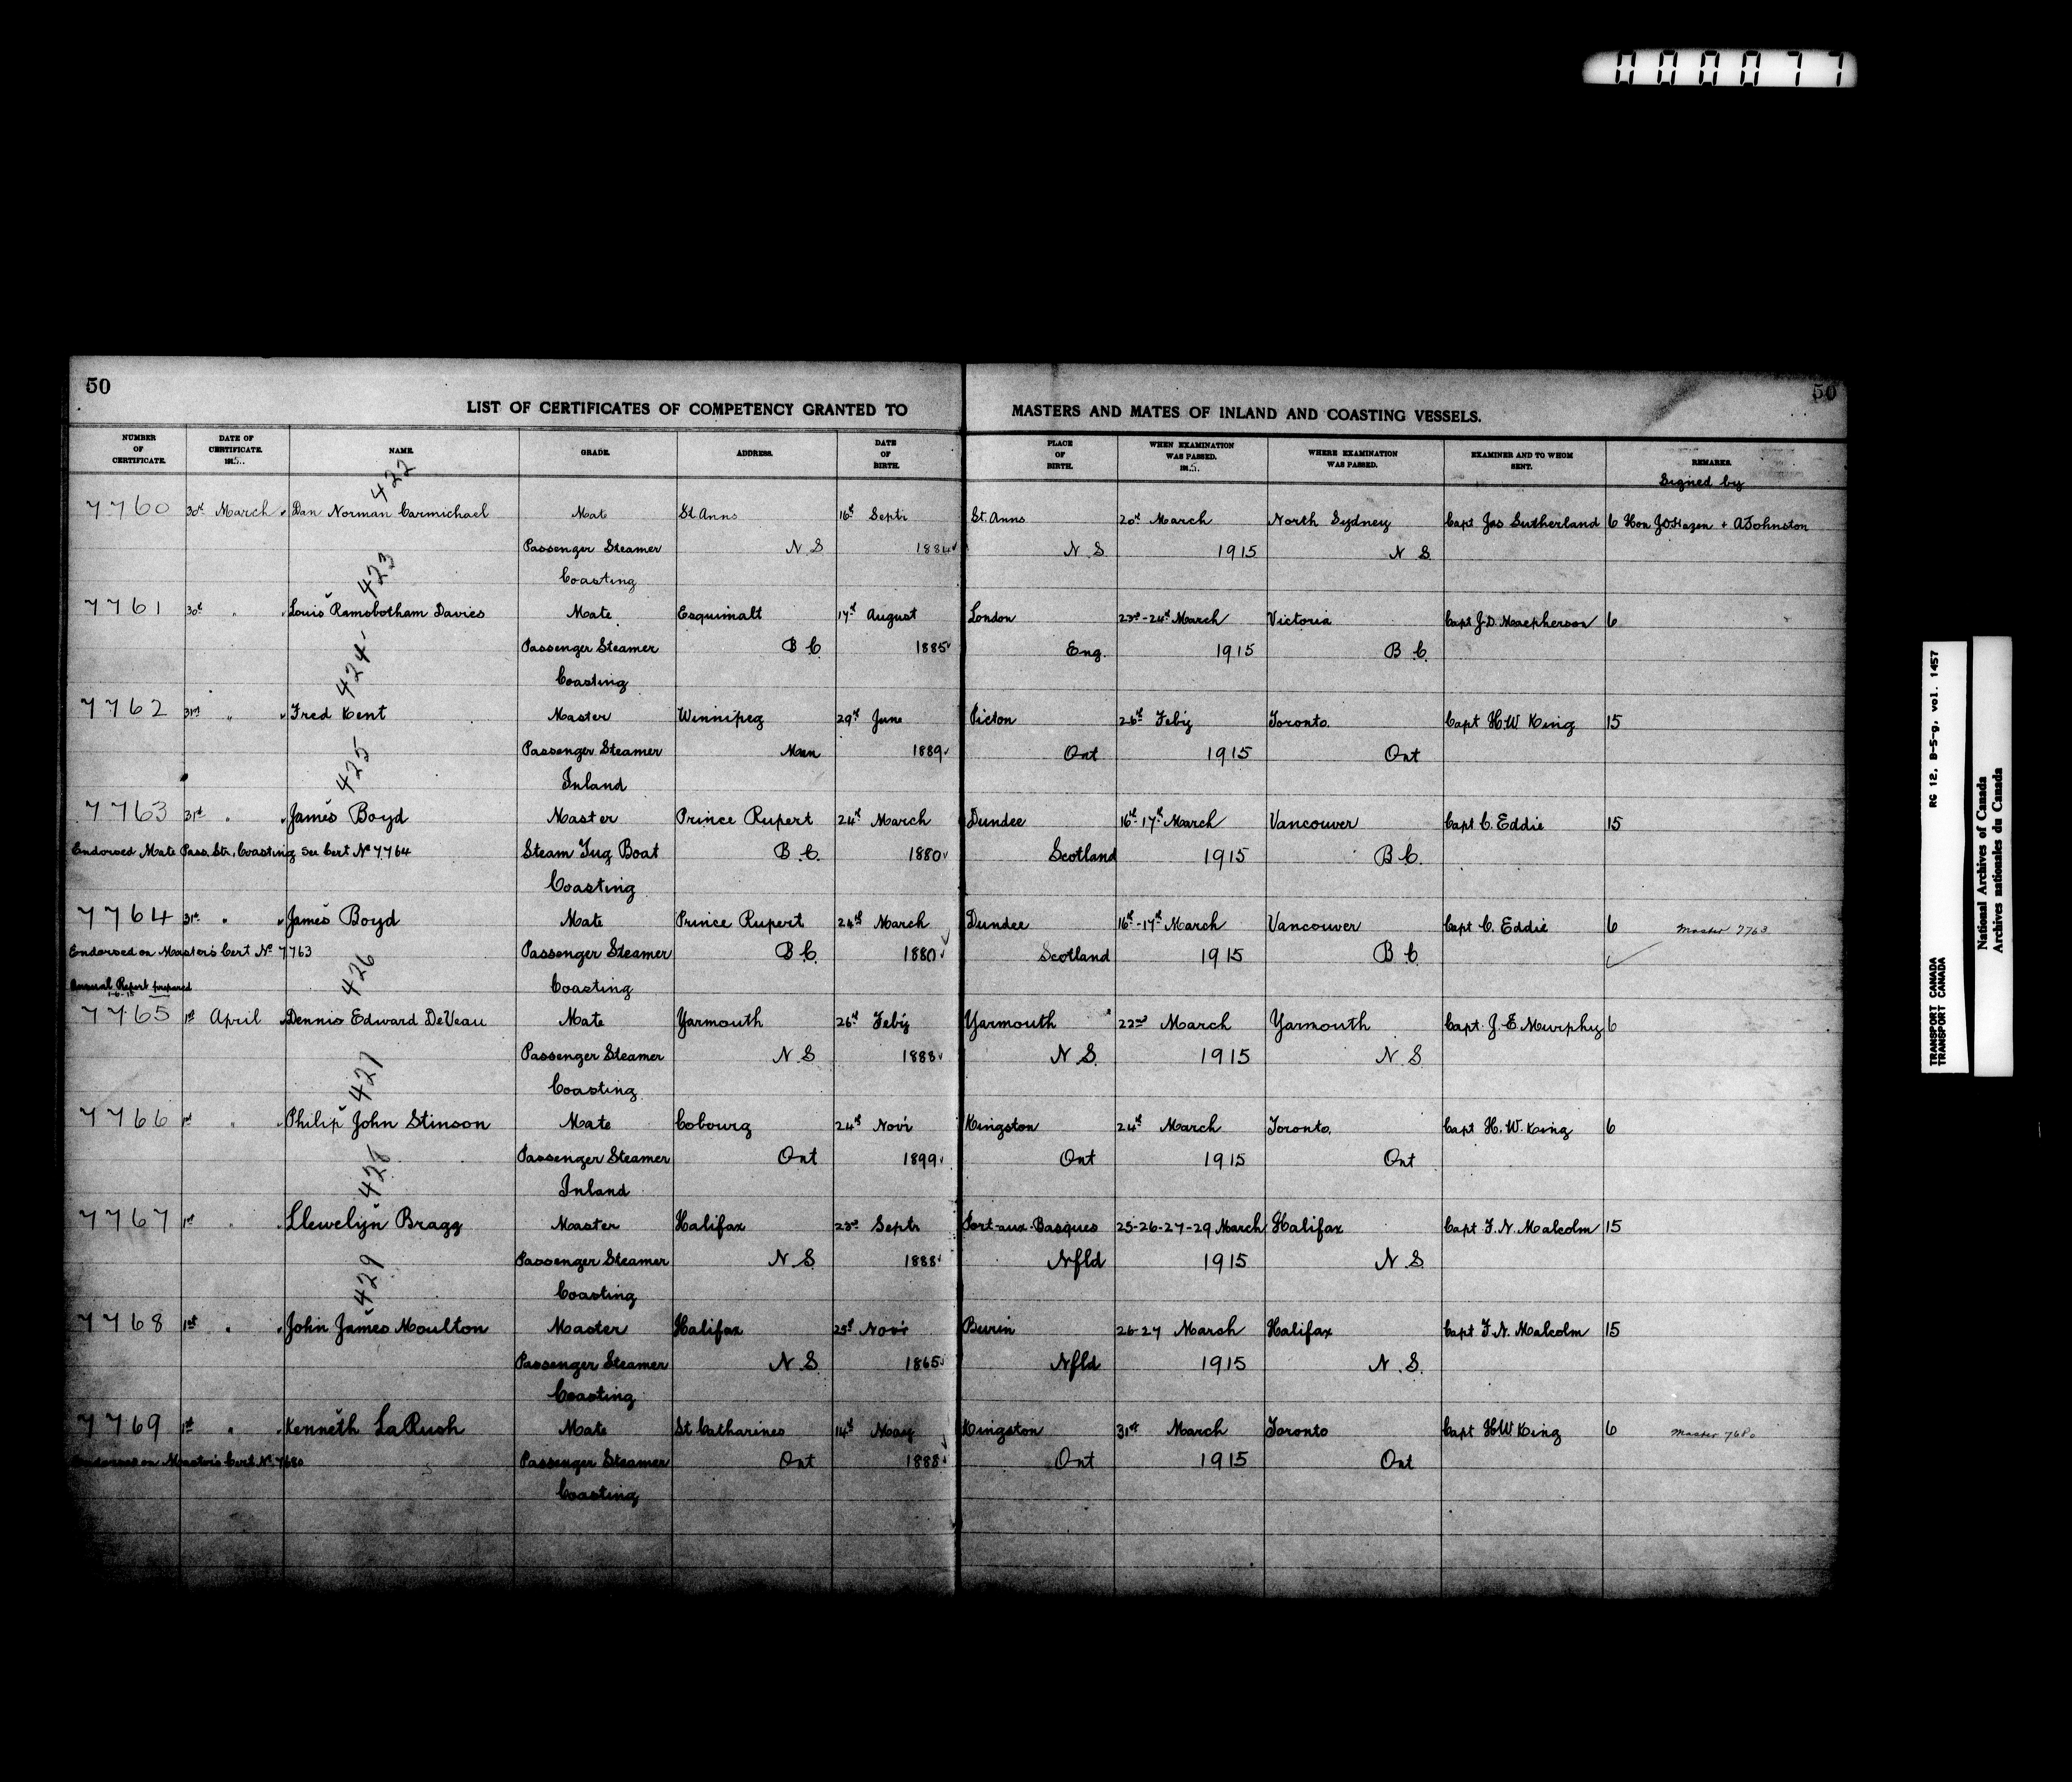 000077
50
50
LIST OF CERTIFICATES OF COMPETENCY GRANTED TO MASTERS AND MATES OF INLAND AND COASTING VESSELS.
NUMBER OF CERTIFICATE. DATE OF CERTIFICATE. 1915. NAME. GRADE. ADDRESS. DATE OF BIRTH. PLACE OF BIRTH. WHEN EXAMINATION WAS PASSED. 1915. WHERE EXAMINATION WAS PASSED. EXAMINER AND TO WHOM SENT. REMARKS.
Signed by
422
7760 30th March Dan Norman Carmichael Mate St. Anns 16th Septr St. Anns 20th March North Sydney Capt Jas Sutherland 6 Hon J.D. Hazen + A Johnston
Passenger Steamer N S 1884 N. S. 1915 N S.
Coasting
423
7761 30th " Louis Ramsbotham Davies Mate Esquimalt 17th August London 23rd-24th March Victoria Capt J.D. Macpherson 6
Passenger Steamer B C. 1885 Eng. 1915 B C.
Coasting
424
7762 31st " Fred Kent Master Winnipeg 29th June Picton 26th Feby Toronto. Capt H.W King 15
Passenger Steamer Man 1889 Ont 1915 Ont
Inland
425
7763 31st " James Boyd Master Prince Rupert 24th March Dundee 16th-17th March Vancouver Capt C. Eddie 15
Endorsed Mate Pass. Str., Coasting See Cert No 7764 Steam Tug Boat B C. 1880 Scotland 1915 B C.
Coasting
7764 31st " James Boyd Mate Prince Rupert 24th March Dundee 16th-17th March Vancouver Capt C. Eddie 6 Master 7763
Endorsed on Master's Cert No 7763 Passenger Steamer B C. 1880 Scotland 1915 B C.
Coasting
Annual Report prepared
1-6-15
426
7765 1st April Dennis Edward DeVeau Mate Yarmouth 26th Feby Yarmouth 22nd March Yarmouth Capt. J. E. Murphy 6
Passenger Steamer N S 1888 N. S. 1915 N. S
Coasting
427
7766 1st " Philip John Stinson Mate Cobourg 24th Novr Kingston 24th March Toronto. Capt H. W. King 6
Passenger Steamer Ont 1899 Ont 1915 Ont
Inland
428
7767 1st " Llewelyn Bragg Master Halifax 23rd Septr Port-aux-Basques 25-26-27-29 March Halifax Capt F. N. Malcolm 15
Passenger Steamer N. S. 1888 Nfld 1915 N. S.
Coasting
429
7768 1st " John James Moulton Master Halifax 25th Novr Burin 26-27 March Halifax Capt F. N. Malcolm 15
Passenger Steamer N. S. 1865 Nfld 1915 N. S.
Coasting
7769 1st " Kenneth LaRush Mate St Catharines 14th May Kingston 31st March Toronto Capt H.W King 6 Master 7680
Endorsed on Master's Cert. No 7680 Passenger Steamer Ont 1888 Ont 1915 Ont
Coasting
TRANSPORT CANADA RG 12, B-5-g, vol. 1457
TRANSPORT CANADA
National Archives of Canada
Archives nationales du Canada